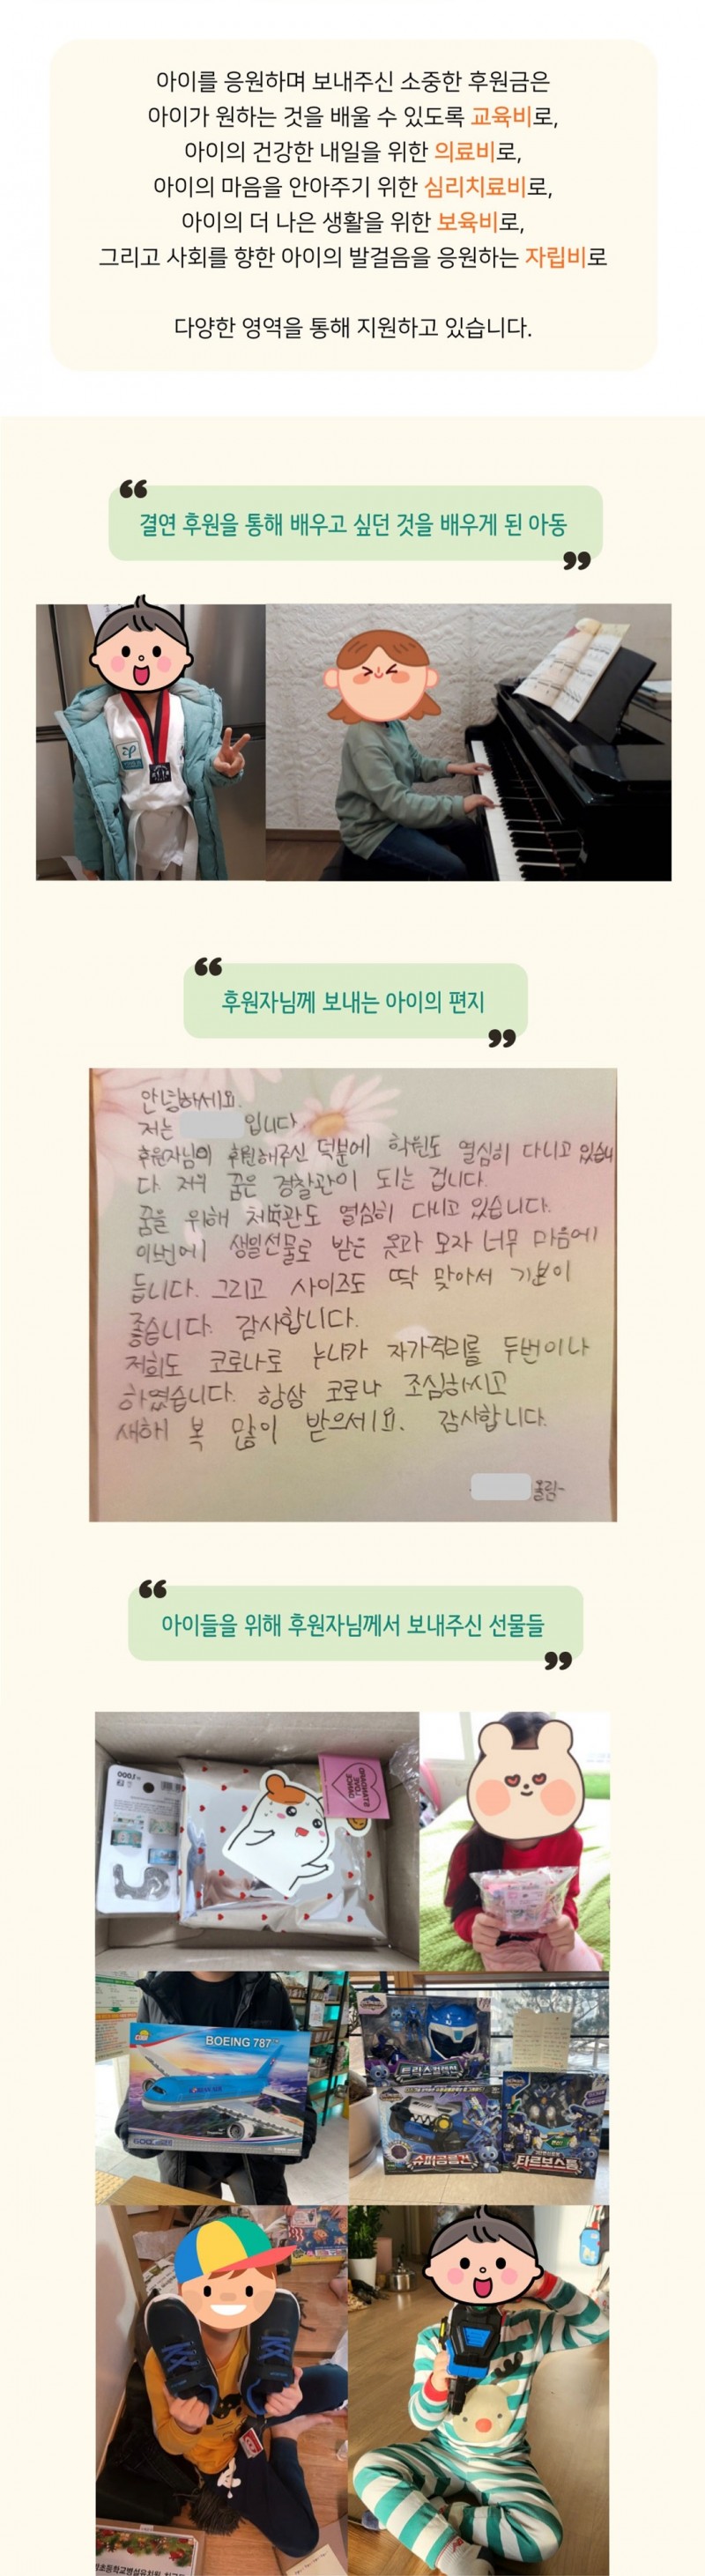 아이를 응원하며 보내주신 소중한 후원금은
아이가 원하는 것을 배울 수 있도록 교육비로,
아이의 건강한 내일을 위한 의료비로,
아이의 마음을 안아주기 위한 심리치료비로,
아이의 더 나은 생활을 위한 보육비로,
그리고 사회를 향한 아이의 발걸음을 응원하는 자립비로
다양한 영역을 통해 지원하고 있습니다.
“
결연 후원을 통해 배우고 싶던 것을 배우게 된 아동
”
“
후원자님께 보내는 아이의 편지
”
안녕하세요.
저는 입니다.
후원자님이 후원해주신 덕분에 학원도 열심히 다니고 있습니
다. 저의 꿈은 경찰관이 되는 겁니다.
꿈을 위해 체육관도 열심히 다니고 있습니다.
이번에 생일선물로 받은 옷과 모자 너무 마음에
듭니다. 그리고 사이즈도 딱 맞아서 기분이
좋습니다. 감사합니다.
저희도 코로나로 누나가 자가격리를 두번이나
하였습니다. 항상 코로나 조심하시고
새해 복 많이 받으세요. 감사합니다.
올림-
“
아이들을 위해 후원자님께서 보내주신 선물들
”
BOEING 787
KOREAN AIR
트리스카이션
슈퍼공룡건
타르보스톰